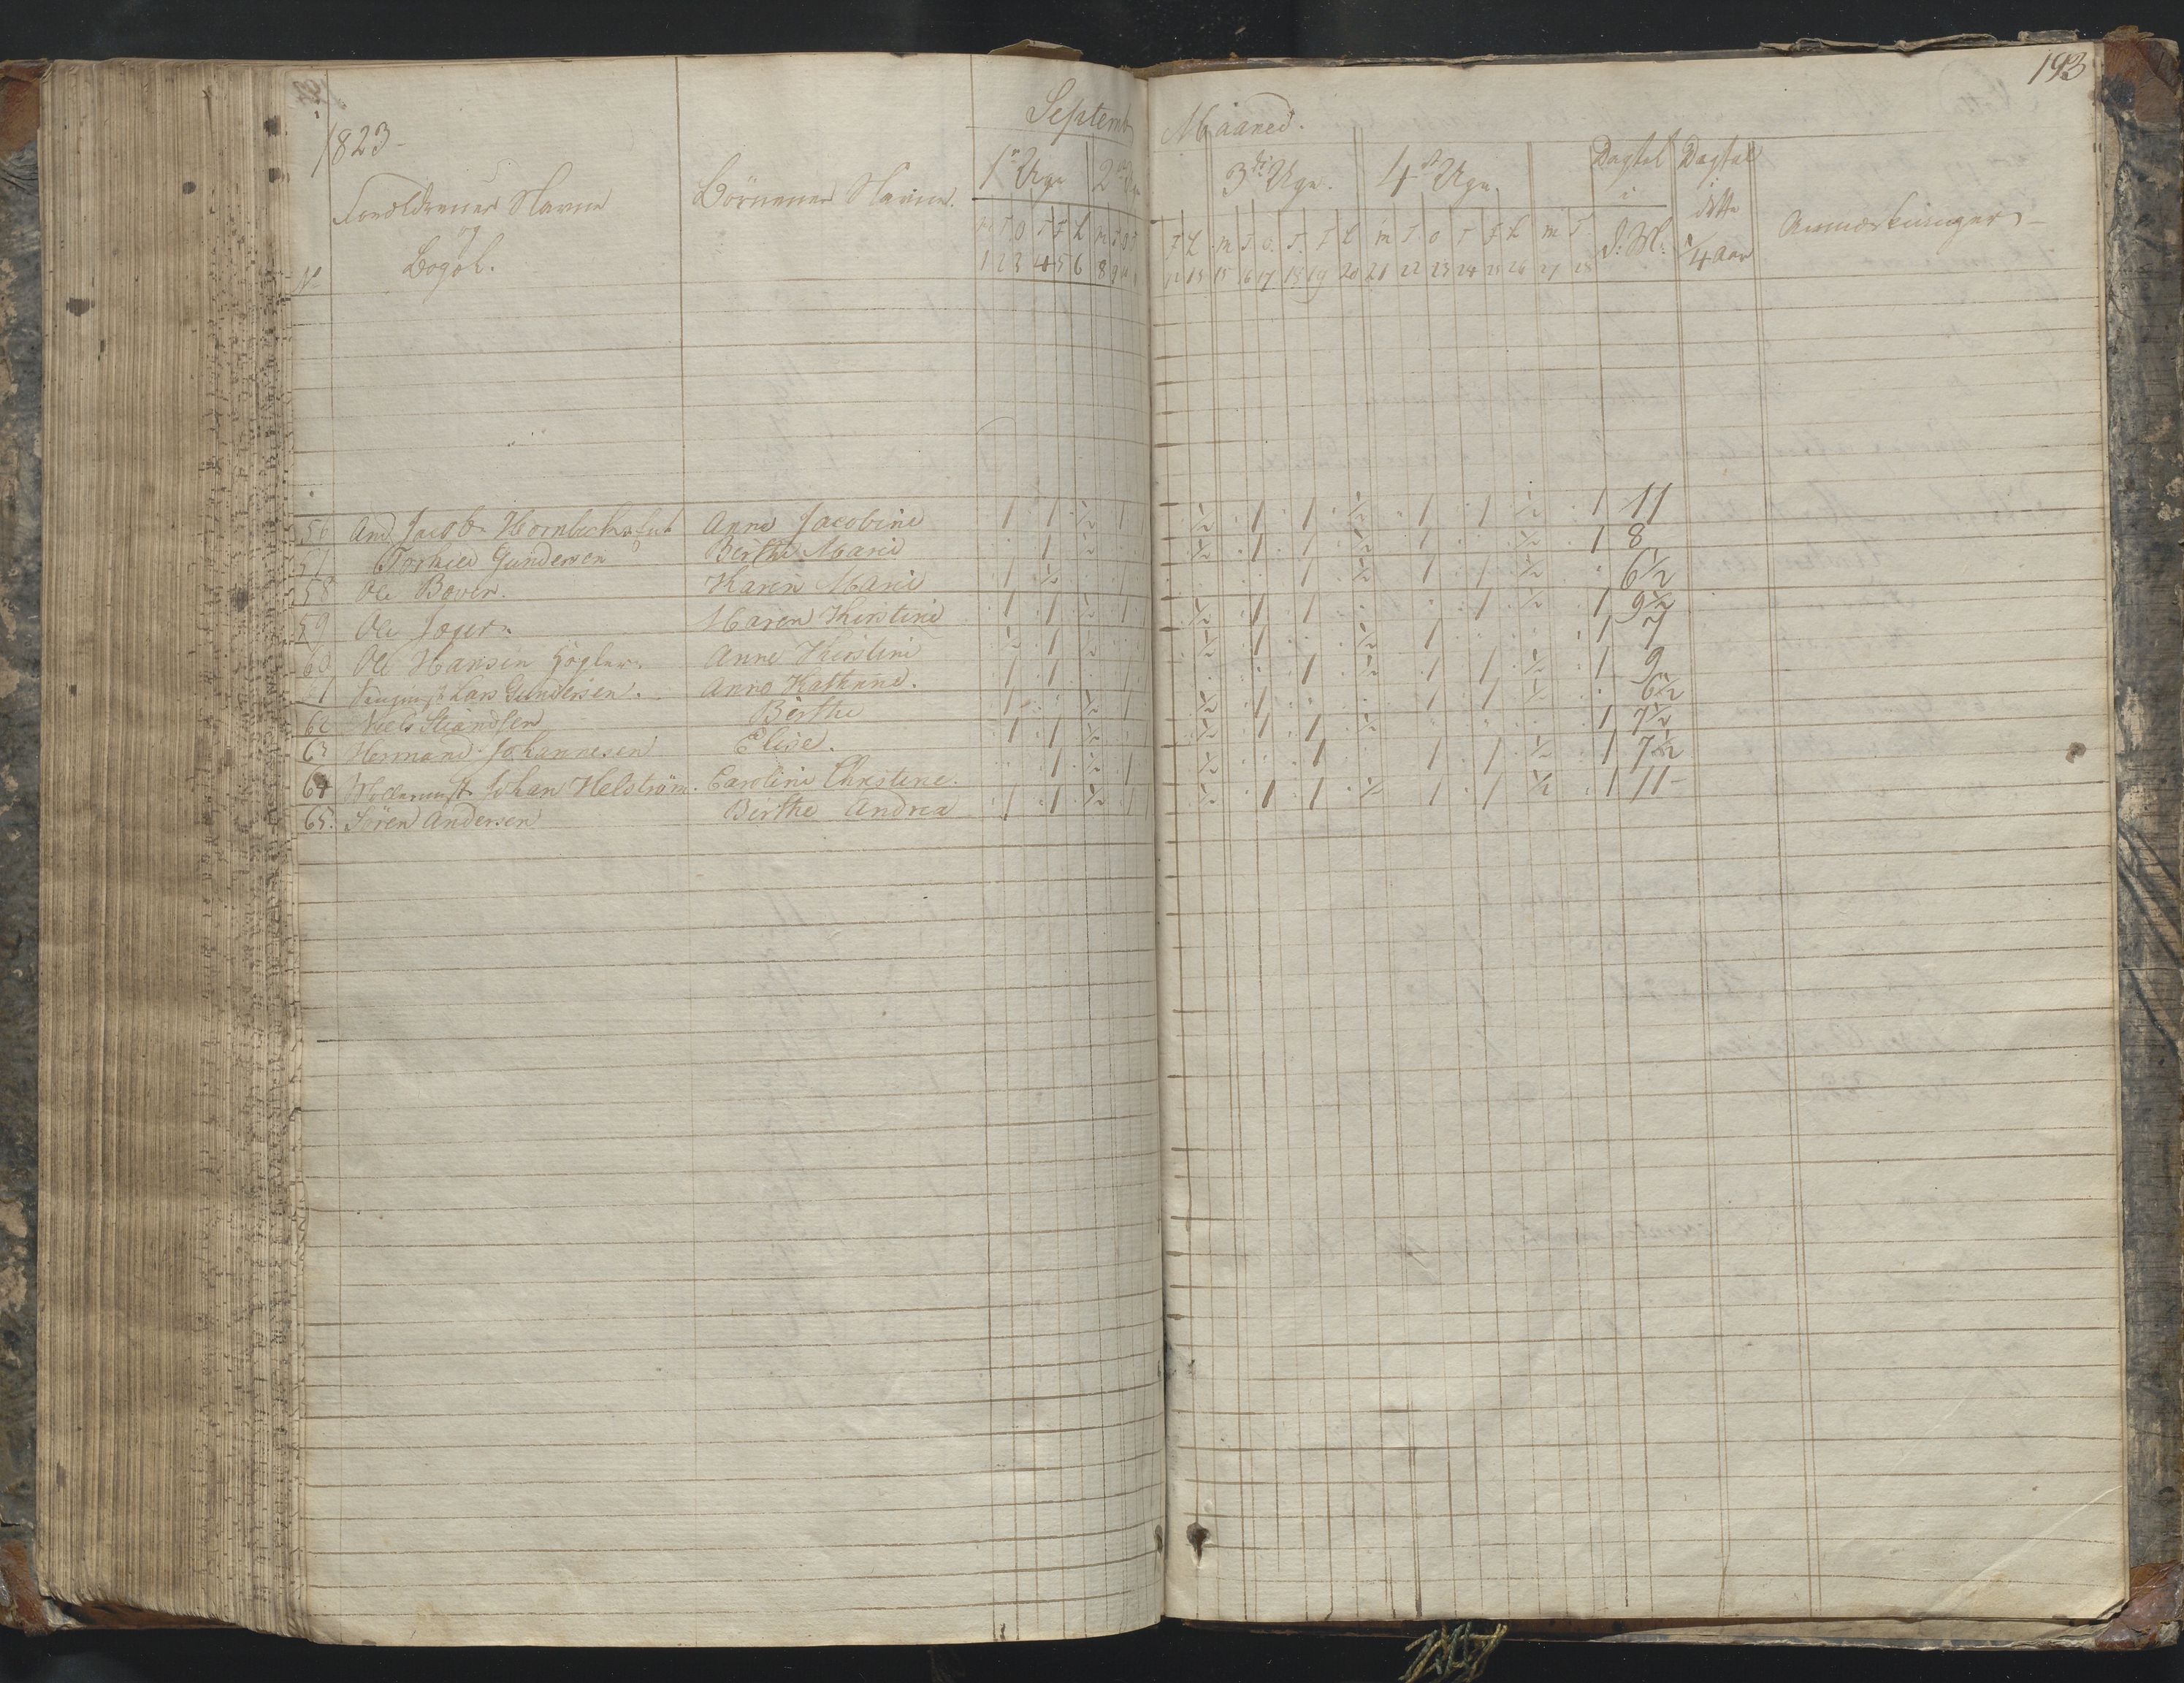 193
1823
Septemb Maaned.
Forældrenes Navne
og
Bopæl.
No
Börnenes Navne.
1r Uge 2den Uge 3die Uge. 4de Uge.
Dagtal i d: M:
Dagtal i dette 1/4 Aar
Anmærkninger
M T O T F L M T O T F L M T O T F L M T O T F L M T
1 2 3 4 5 6 8 9 12 13 15 16 17 18 19 20 21 22 23 24 25 26 27 28
56 And Jacob Hornbech Anne Jacobine 1 1 ½ 1 ½ 1 1 ½ 1 1 ½ 1 11
57 Torkied Gundersen Berthe Marie 1 ½ ½ 1 1 ½ 1 ½ 1 8
58 Ole Boven. Karen Marie 1 ½ 1 ½ 1 1 ½ 6½
59 Ole Joger Maren Kirstine 1 1 ½ 1 ½ 1 1 1 ½ 1 9½
60 Ole Hansen Anne Kirstine ½ 1 ½ ½ 1 ½ 1 1 7
61 Lars Gundersen. Anne Kathrine. 1 1 1 1 ½ 1 1 ½ 1 9
62 Niels Steandsen Berthe 1 ½ 1 ½ 1 1 1 ½ 6½
63 Hermand Johannesen Elise. 1 1 ½ ½ 1 1 ½ 1 7½
64 Möllermst. Johan Helström. Caroline Chrstine. 1 ½ 1 ½ 1 1 1 ½ 1 7½
65. Sören Andersen Berthe Andrea 1 1 ½ 1 ½ 1 1 ½ 1 1 ½ 1 11